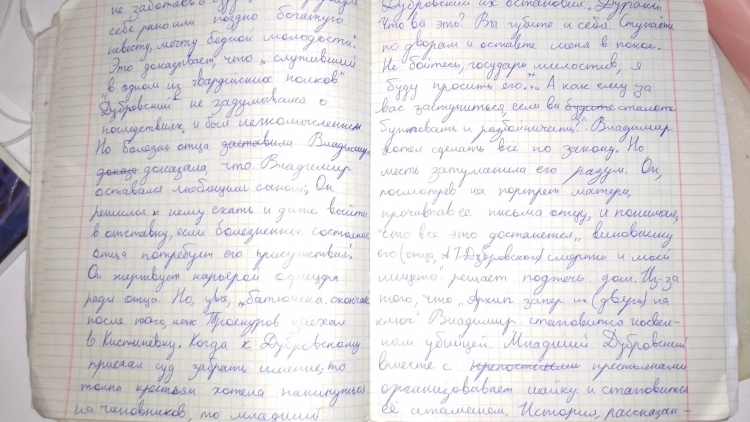 не заботясь о
себе рано или поздно богатую
невесту, мечту бедной молодости".
Это доказывает, что "служивший
в одном из гвардейских полков"
Дубровский не задумывался о
последствиях и был легкомысленным.
Но болезнь отца заставила Владимира
доказа доказала, что Владимир
оставался любящим сыном: "Он
решился к нему ехать и даже выйти
в отставку, если болезненное состояние
отца потребует его присутствия".
Он жертвует карьерой офицера
ради отца. Но, увы, "батюшка скончался
после того, как Троекуров заехал
в Кистинёвку. Когда к Дубровскому
приехал суд забрать имение, то
толпа крестьян хотела накинуться
на чиновников, то младший
Дубровский их остановил. "Дураки!
Что вы это? Вы губите и себя. Ступайте
по дворам и оставьте меня в покое.
Не бойтесь, государь милостив, я
буду просить его... А как ему за
вас заступиться, если вы будете станете
бунтовать и разбойничать". Владимир
хотел сделать всё по закону. Но
месть затуманила его разум. Он,
посмотрев на портрет матери,
прочитав её письма отцу, и понимая,
что все это достанется "виновнику
его (отца, А.Г. Дубровского) смерти и моей
нищеты" решает поджечь дом. Из-за
того, что "Архип запер их (двери) на
ключ" Владимир становится косвен-
ным убийцей. Младший Дубровский
вместе с крестьянами
организовывает шайку и становится
её атаманом. История, рассказан-